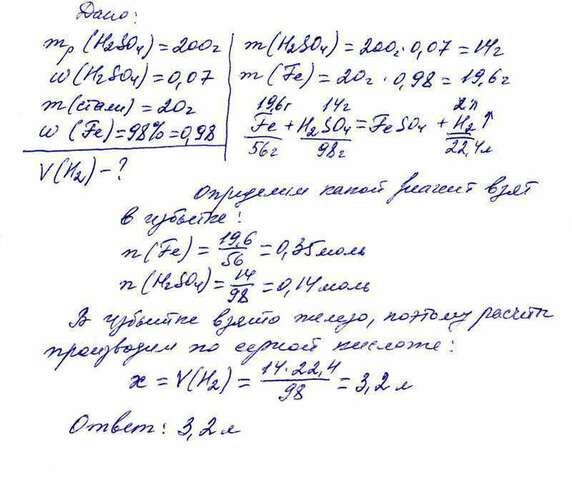 Дано:
mр (H2SO4) = 200г
w (H2SO4) = 0,07
m (стали) = 20г
w (Fe) = 98% = 0,98
V(H2) - ?
m (H2SO4) = 200г · 0,07 = 14г
m (Fe) = 20г · 0,98 = 19,6г
19,6г 14г x л
Fe + H2SO4 = FeSO4 + H2 ↑
56г 98г 22,4л
Определим какой реагент взят
в избытке:
n (Fe) = 19,6/56 = 0,35 моль
n (H2SO4) = 14/98 = 0,14 моль
В избытке взято железо, поэтому расчёты
производим по серной кислоте:
x = V(H2) = 14·22,4/98 = 3,2 л
Ответ: 3,2 л